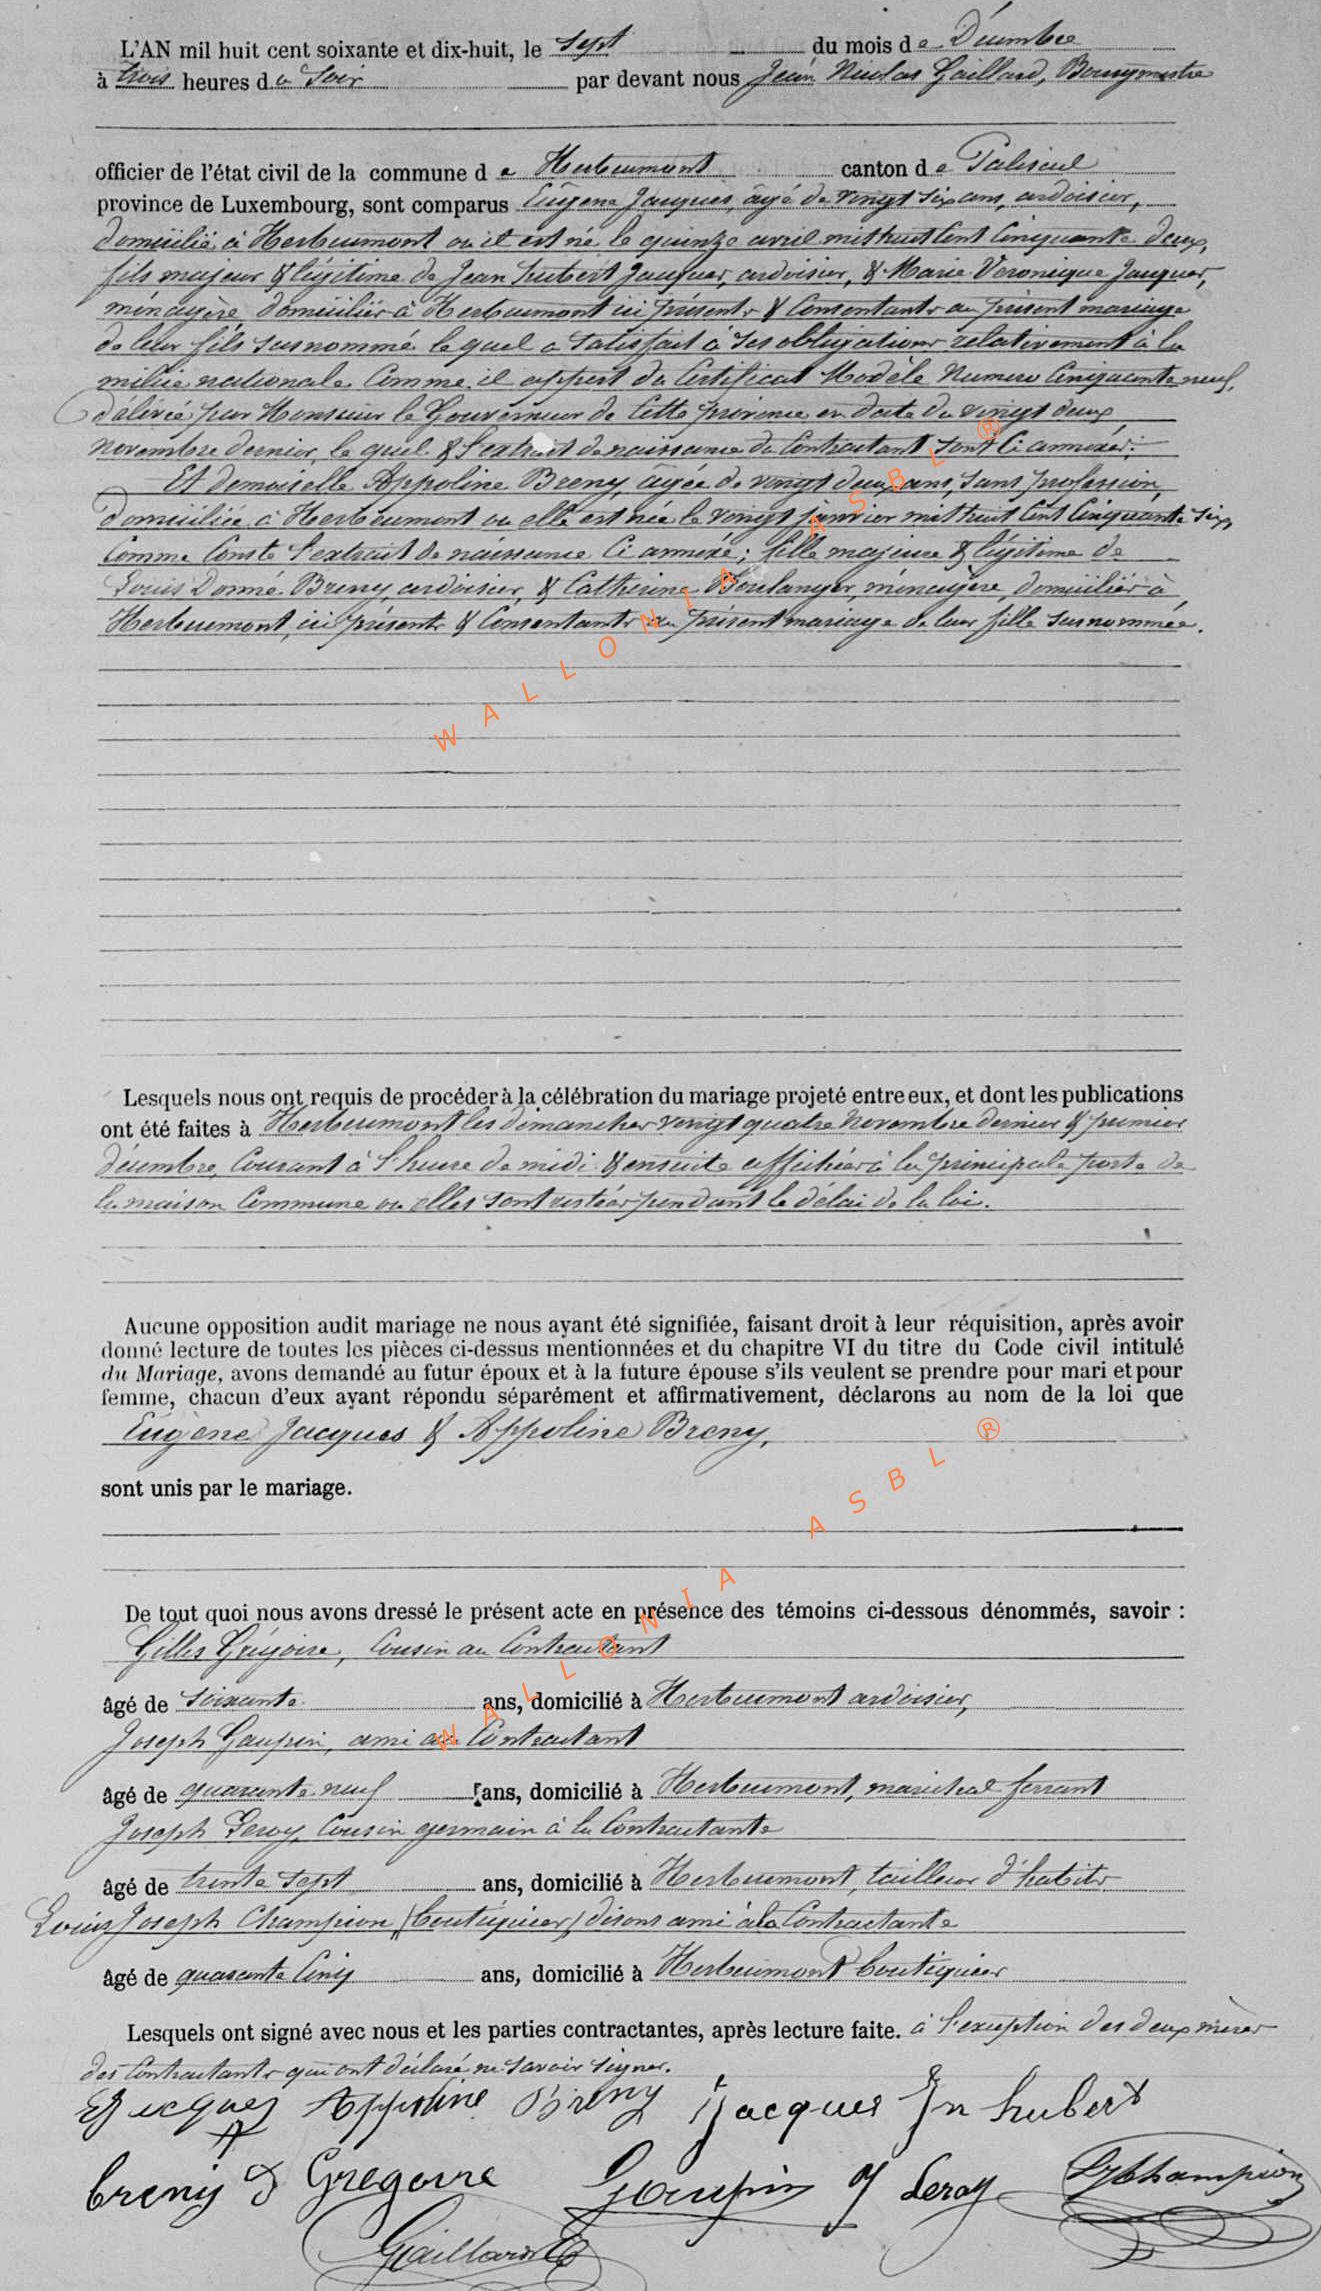 L'AN mil huit cent soixante et dix-huit, le sept du mois de Décembre
à trois heures du Soir par devant nous Jean Nicolas Gaillard, Bourgmestre
officier de l'état civil de la commune de Herbeumont canton de Paliseul
province de Luxembourg, sont comparus Eugène Jacques, âgé de vingt six ans, ardoisier,
domicilié à Herbeumont où il est né le quinze avril mil huit Cent Cinquante deux,
fils majeur & légitime de Jean hubert Jacques, ardoisier, & Marie Veronique Jacques,
ménagère domiciliés à Herbeumont ici présents & Consentants au présent mariage
de leur fils susnommé le quel a satisfait à ses obligations relativement à la
milice nationale Comme il appert du Certificat Modèle Numero Cinquante neuf,
délivré par Monsieur le Gouverneur de Cette province en date du vingt deux
novembre dernier, le quel & l'extrait de naissance du Contractant sont Ci annexés;
Et demoiselle Appoline Breny, âgée de vingt deux ans, sans profession,
domiciliée à Herbeumont où elle est née le vingt janvier mil huit Cent Cinquante six,
Comme Conste l'extrait de naissance Ci annexé; fille majeure & légitime de
Louis Donné Breny ardoisier, & Catherine Boulanger, ménagère, domiciliés à
Herbeumont, ici présents & Consentants au présent mariage de leur fille susnommée.
WALLONIA ASBL ®
Lesquels nous ont requis de procéder à la célébration du mariage projeté entre eux, et dont les publications
ont été faites à Herbeumont les dimanches vingt quatre Novembre dernier & premier
décembre, Courant à l'heure de midi & ensuite affichées à la principale porte de
la maison Commune où elles sont restées pendant le délai de la loi.
Aucune opposition audit mariage ne nous ayant été signifiée, faisant droit à leur réquisition, après avoir
donné lecture de toutes les pièces ci-dessus mentionnées et du chapitre VI du titre du Code civil intitulé
du Mariage, avons demandé au futur époux et à la future épouse s'ils veulent se prendre pour mari et pour
femme, chacun d'eux ayant répondu séparément et affirmativement, déclarons au nom de la loi que
Eugène Jacques & Appoline Breny,
sont unis par le mariage.
WALLONIA ASBL ®
De tout quoi nous avons dressé le présent acte en présence des témoins ci-dessous dénommés, savoir :
Gilles Grégoire, Cousin au Contractant
âgé de soixante ans, domicilié à Herbeumont ardoisier,
Joseph Goupin, ami au Contractant
âgé de quarante neuf ans, domicilié à Herbeumont, maréchal ferrant
Joseph Leroy, Cousin germain à la Contractante
âgé de trente sept ans, domicilié à Herbeumont, tailleur d'habits
Louis Joseph Champion (boutiquier) disons ami à la Contractante
âgé de quarante Cinq ans, domicilié à Herbeumont boutiquier
Lesquels ont signé avec nous et les parties contractantes, après lecture faite. à l'exception des deux mères
des Contractants qui ont déclaré ne savoir signer.
E Jacques Appoline Breny Jacques Jn hubert
breny d Gregoire Goupin J Leroy LJ Champion
Gaillard